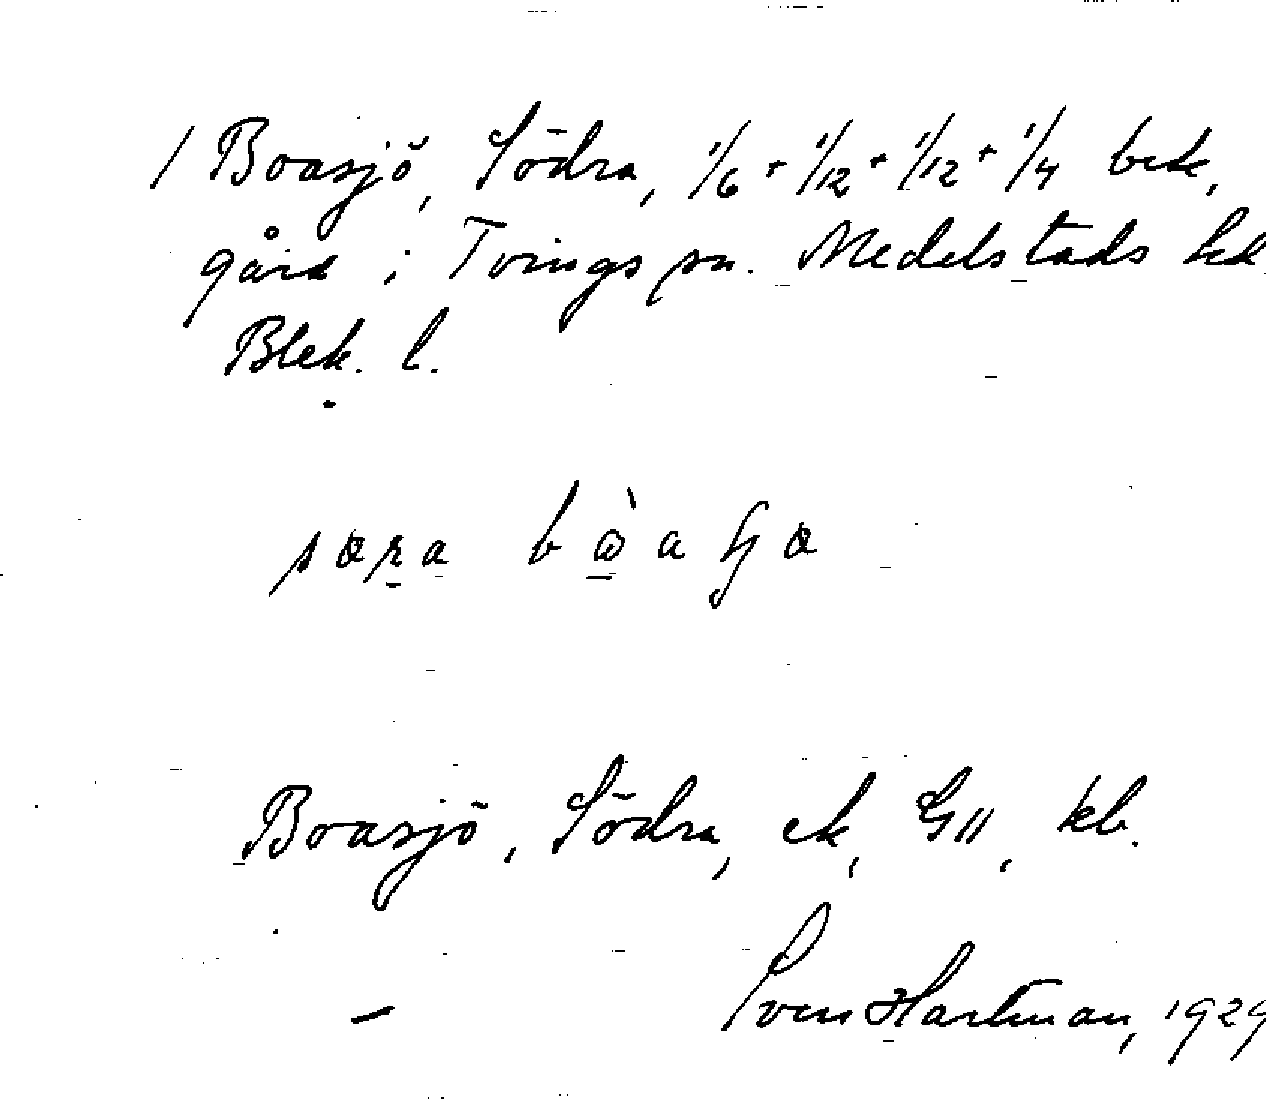 1 Boasjö, Södra, 1/6 + 1/12 + 1/12 + 1/4 bek,
gård i Tvings sn. Medelstads hd
Blek. l.
Boasjö, Södra, ek, GII, kb.
Sven Hartman, 1929